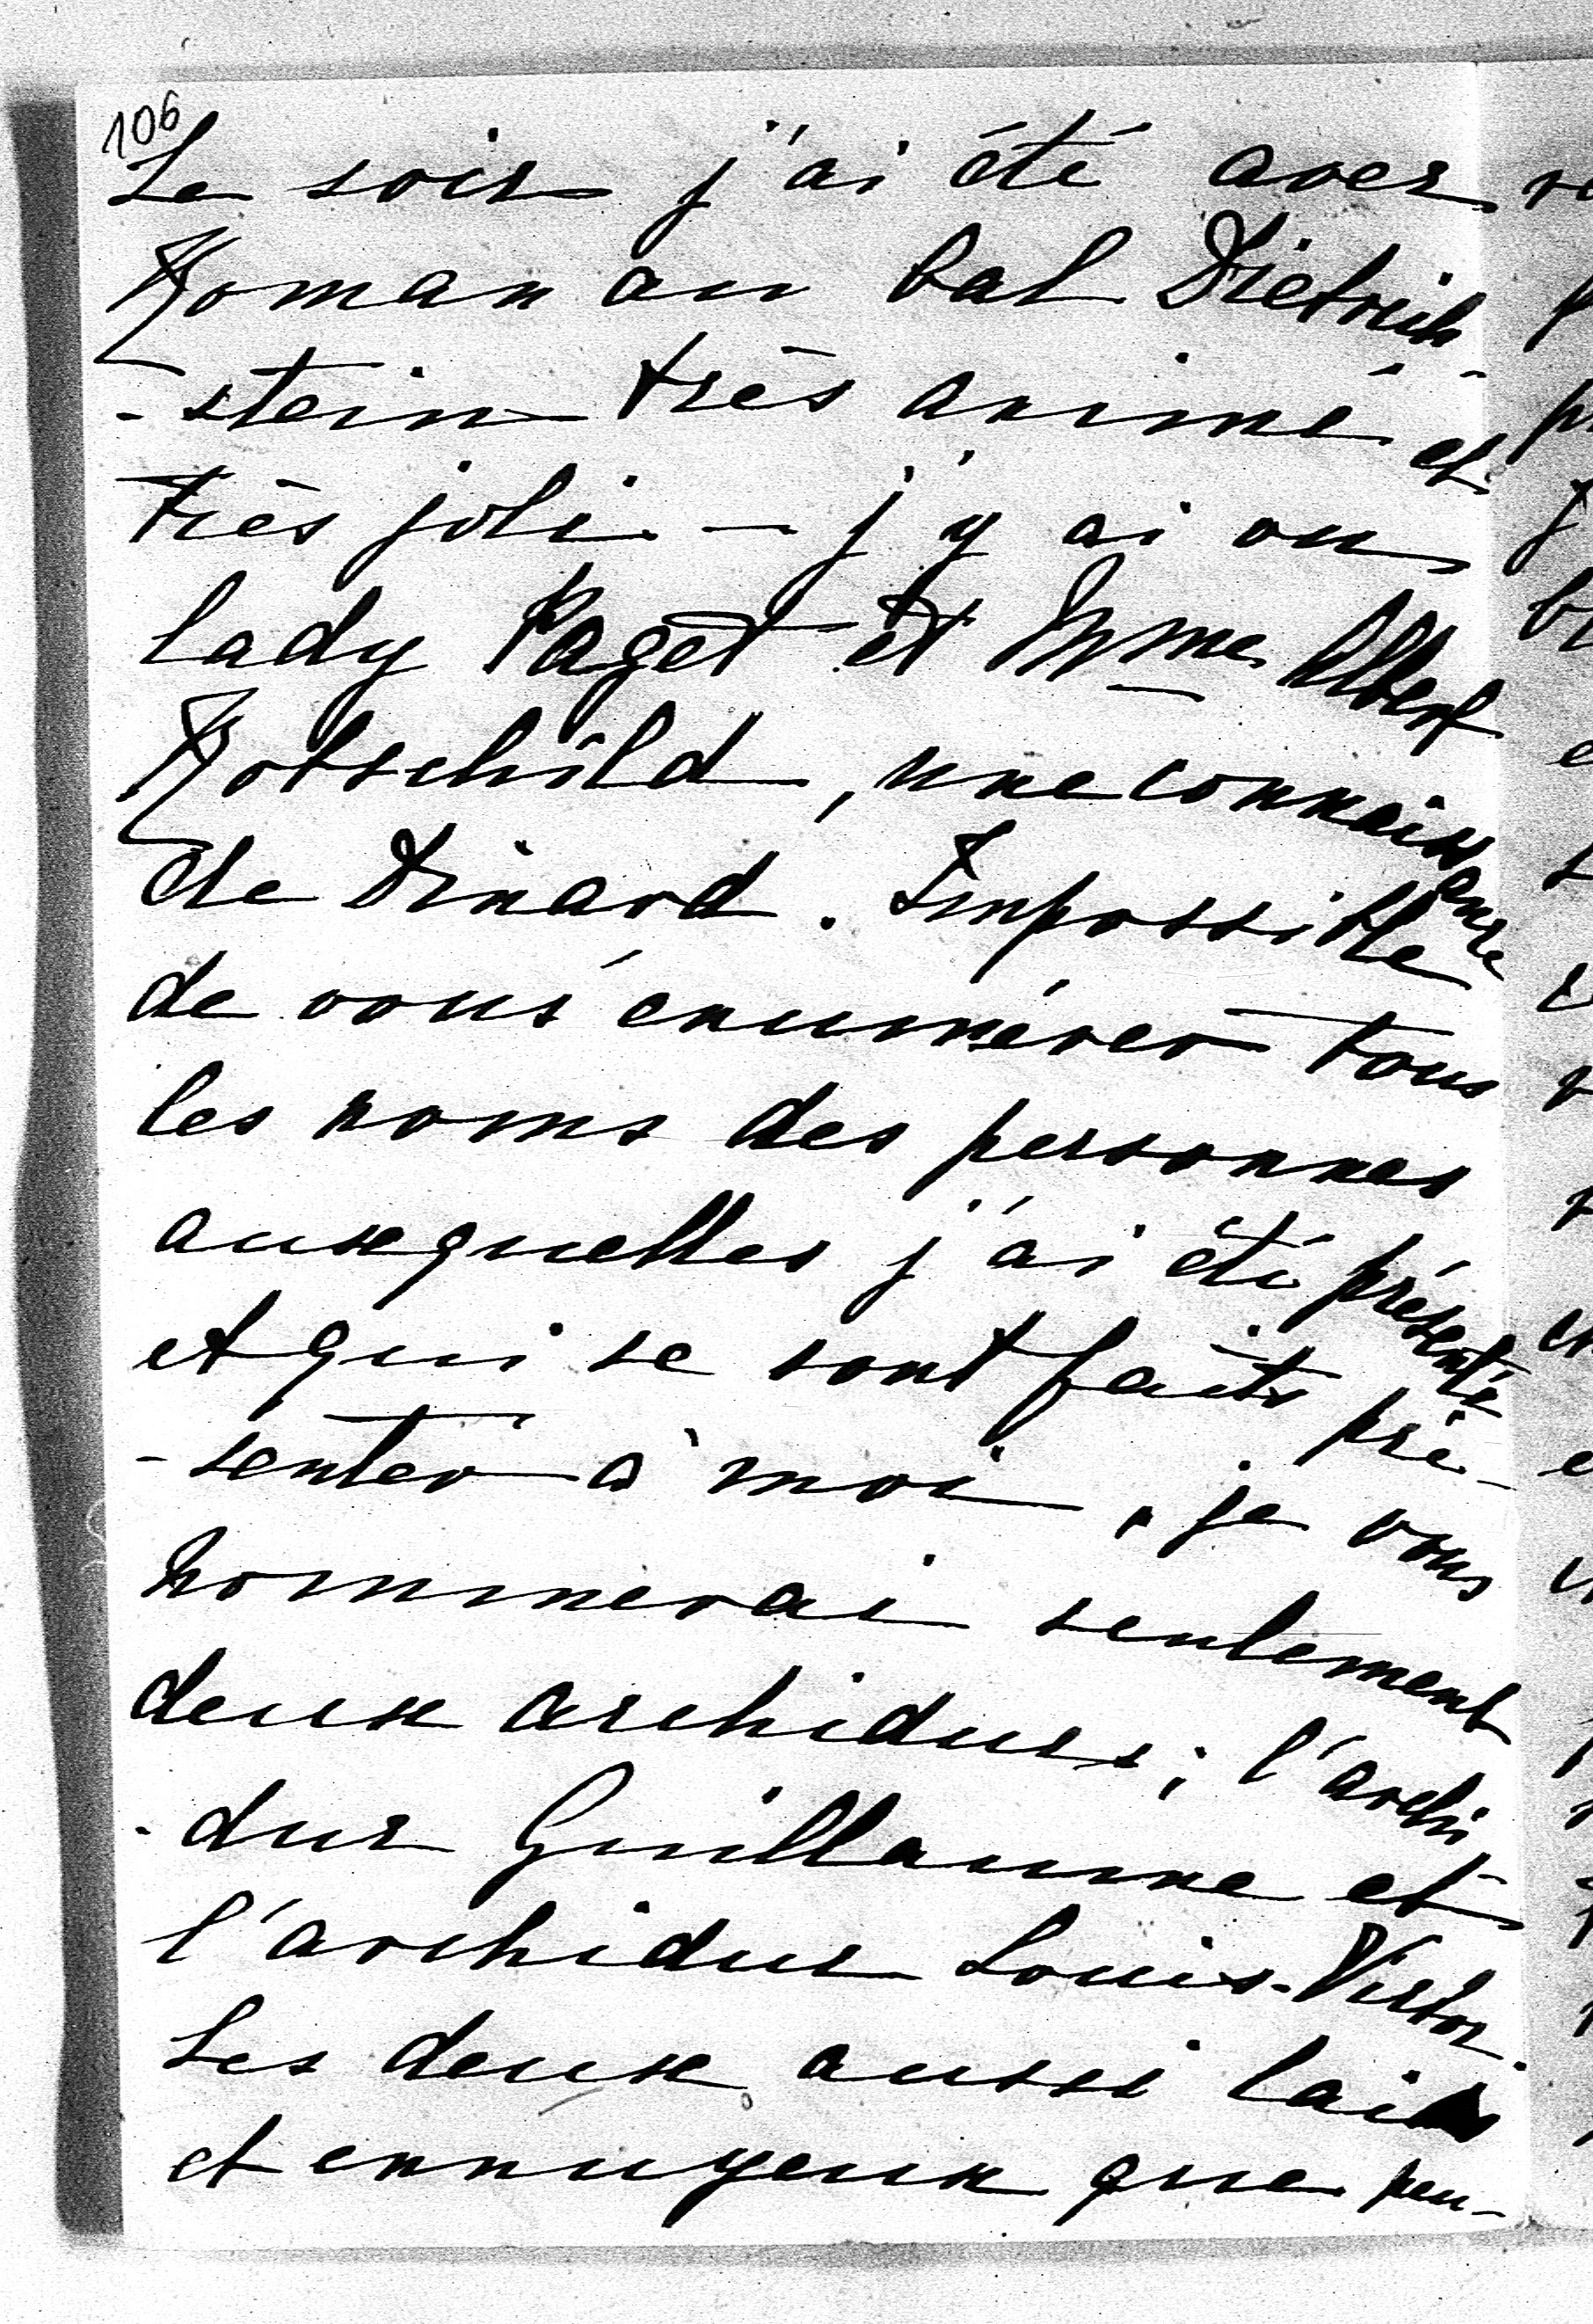 106
Le soir j'ai été avec
Roman au bal Dietrich
-stein très animé et
très joli. — j'y ai vu
lady Paget et Mme Albert
Rotschild, une connaissance
de Dinard. Impossible
de vous énumérer tous
les noms des personnes
auxquelles j'ai été présenté
et qui se sont faits pré-
-senter à moi, je vous
nommerai seulement
deux archiducs; l'archi
-duc Guillaume et
l'archiduc Louis-Victor.
Les deux aussi laids
et ennuyeux que peu-